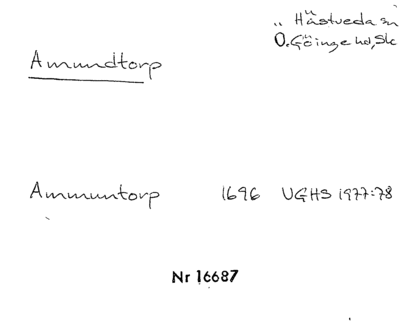 Hästveda sn
Ö. Göinge hd, Sk
Amundtorp
Ammuntorp 1696 UGHS 1977:78
Nr 16687